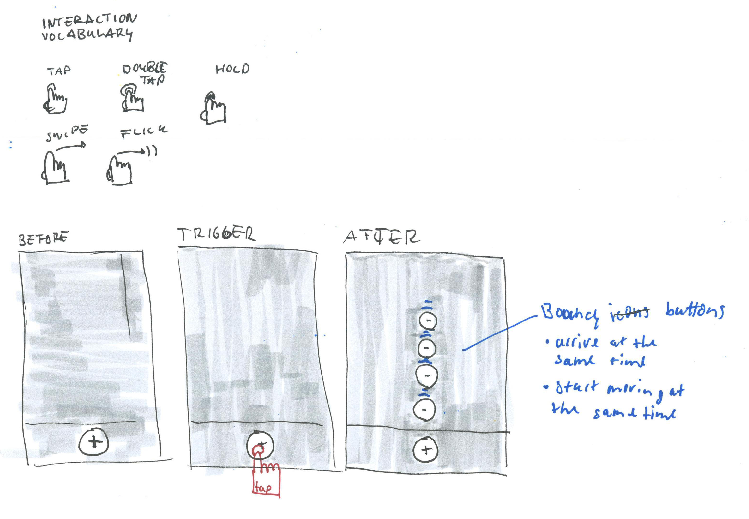 INTERACTION
VOCABULARY
TAP
DOUBLE
TAP
HOLD
SWIPE
FLICK
BEFORE
TRIGGER
AFTER
+
+
tap
-
-
-
-
+
Bouncy icons buttons
• arrive at the
same time
• start moving at
the same time